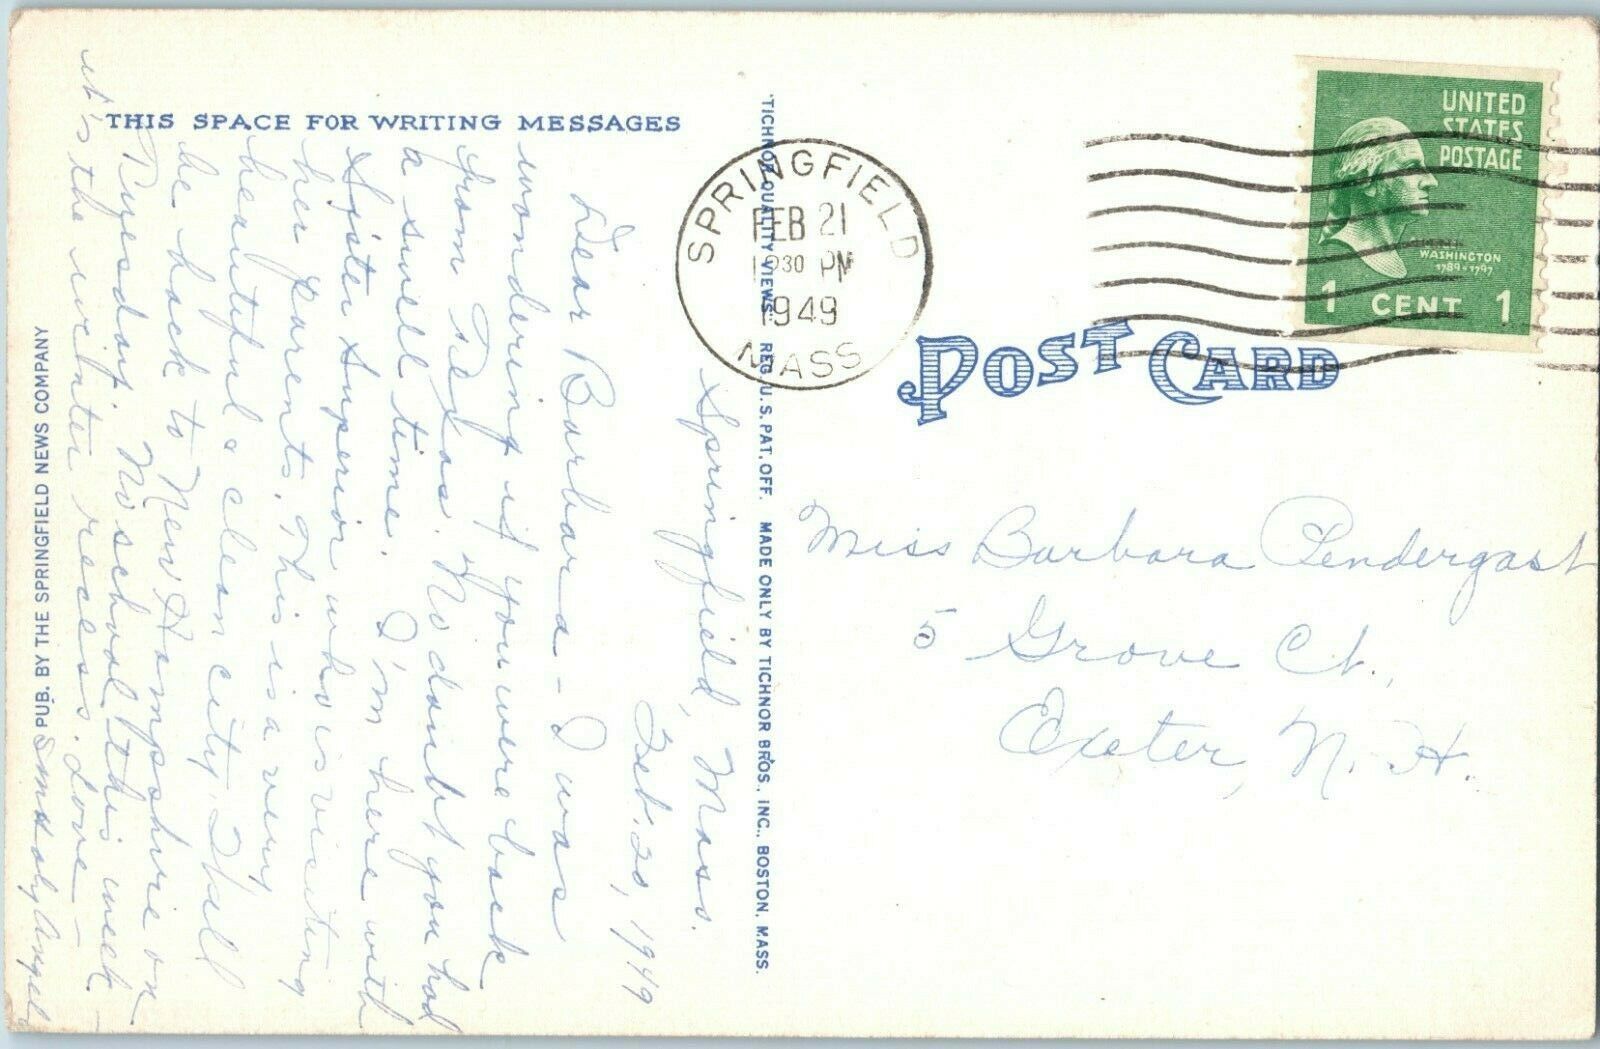 THIS SPACE FOR WRITING MESSAGES
Springfield, Mass.
Feb. 20, 1949
Dear Barbara - I was
wondering if you were back
from Texas. No doubt you had
a swell time. I'm here with
Sister Superior who is visiting
her parents. This is a very
beautiful & clean city. I'll
be back to New Hampshire on
Tuyesday. No school this week -
it's the winter recess. Love -
PUB. BY THE SPRINGFIELD NEWS COMPANY
"TICHNOR QUALITY VIEWS" REG. U.S. PAT. OFF. MADE ONLY BY TICHNOR BROS., INC., BOSTON, MASS.
SPRINGFIELD
FEB 21
30 PM
1949
MASS
UNITED
STATES
POSTAGE
WASHINGTON
1789-1797
1 CENT 1
POST CARD
Miss Barbara Pendergast
5 Grove Ct.,
Exeter, N. H.